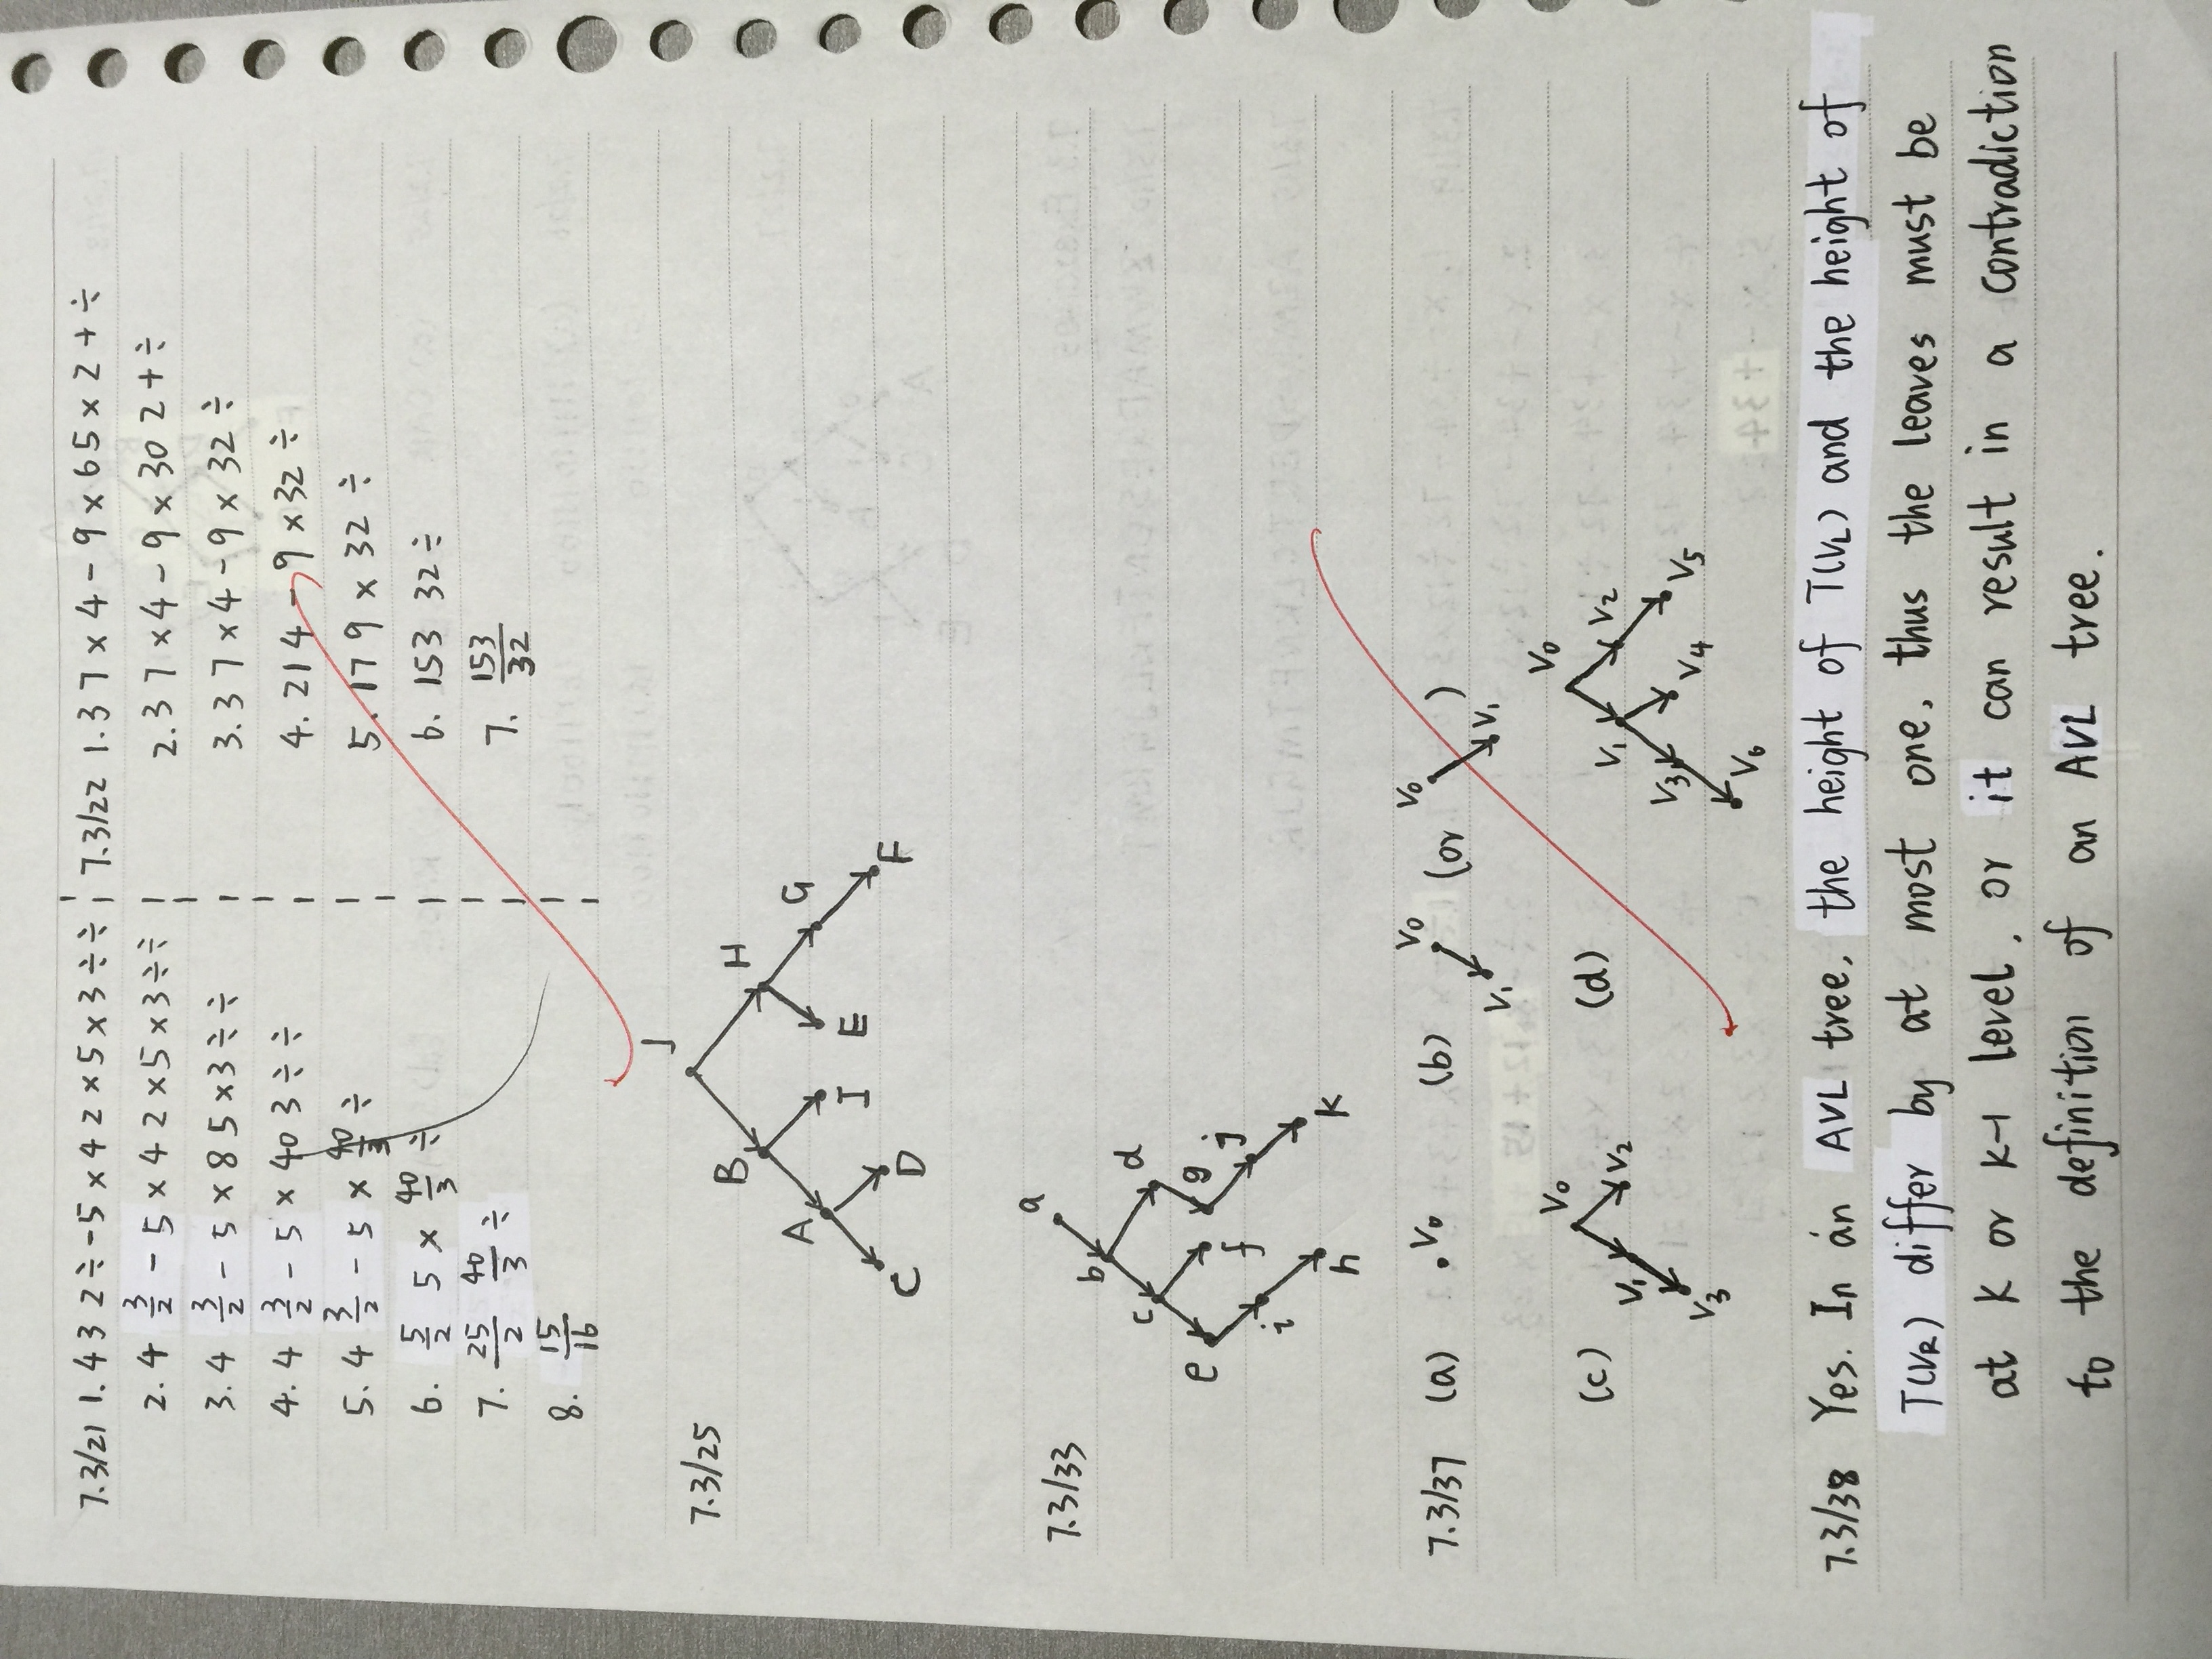 7.3/21 1. 4 3 2 ÷ - 5 × 4 2 × 5 × 3 ÷ ÷
2. 4 3/2 - 5 × 4 2 × 5 × 3 ÷ ÷
3. 4 3/2 - 5 × 8 5 × 3 ÷ ÷
4. 4 3/2 - 5 × 40 3 ÷ ÷
5. 4 3/2 - 5 × 40/3 ÷
6. 5/2 5 × 40/3 ÷
7. 25/2 40/3 ÷
8. 15/16
7.3/22 1. 3 7 × 4 - 9 × 6 5 × 2 + ÷
2. 3 7 × 4 - 9 × 30 2 + ÷
3. 3 7 × 4 - 9 × 32 ÷
4. 21 4 - 9 × 32 ÷
5. 17 9 × 32 ÷
6. 153 32 ÷
7. 153/32
7.3/25
J
B H
A G
I E
C D F
7.3/33
a
b
c d
e g
f j
i
h k
7.3/37 (a) V0 (b) V0 (or V0 )
V1 V1
(c) V0 (d) V0
V1 V2 V1 V2
V3 V3 V4 V5
V6
7.3/38 Yes. In an AVL tree, the height of T(VL) and the height of
T(VR) differ by at most one, thus the leaves must be
at k or k-1 level, or it can result in a contradiction
to the definition of an AVL tree.